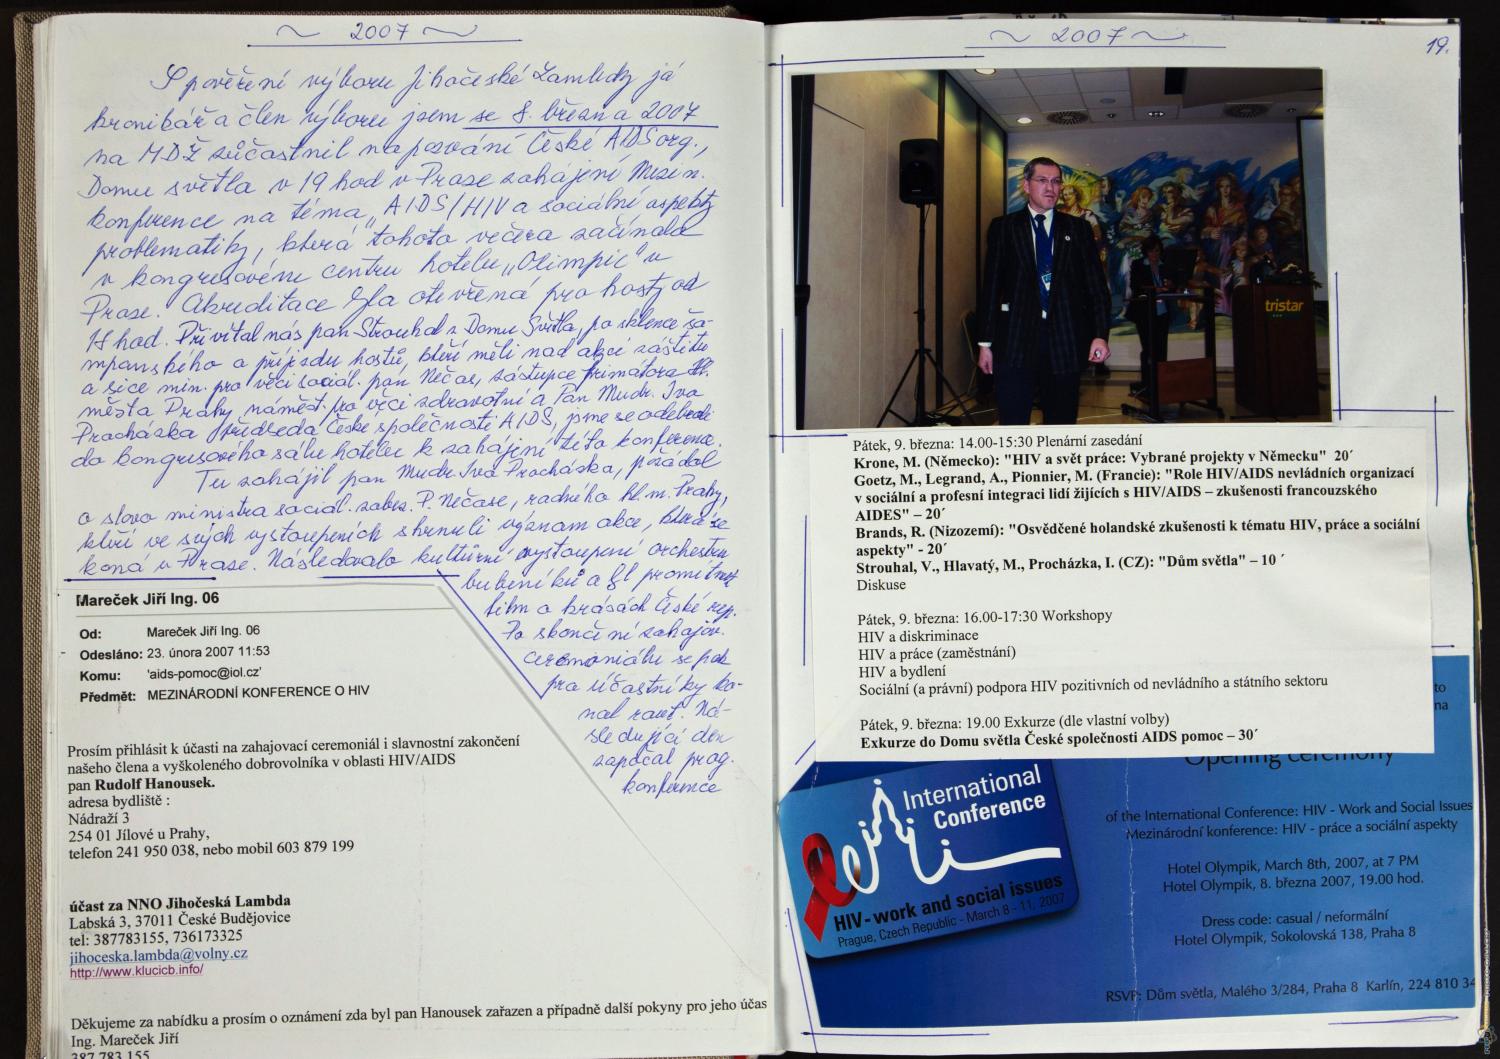 ~ 2007 ~
S pověření výboru Jihočeské Lambdy já
kronikář a člen výboru jsem se 8. března 2007
na MDŽ zůčastnil na pozvání České AIDS org.,
Domu světla v 19 hod v Praze zahájení Mezin.
konference na téma „AIDS/HIV a sociální aspekty
problematiky, která tohoto večera začínala
v kongresovém centru hotelu „Olimpic" v
Praze. Akreditace byla otevřená pro hosty od
18 hod. Přivítal nás pan Strouhal z Domu Světla, po sklence ša-
mpaňského a příjezdu hostů, kteří měli nad akcí záštitu
a sice min. pro věci sociál. pán Nečas, zástupce primátora Hl.
města Prahy náměst. pro věci zdravotní a Pan Mudr. Ivo
Procházka předseda České společnosti AIDS, jsme se odebrali
do kongresového sálu hotelu k zahájení této konference.
Tu zahájil pan Mudr. Ivo Procházka, požádal
o slovo ministra sociál. zabez. P. Nečase, radného hl. m. Prahy,
kteří ve svých vystoupeních shrnuli význam akce, která se
koná v Praze. Následovalo kulturní vystoupení orchestru
bubeníků a byl promítnut
film o krásách České rep.
Po skončení zahajov.
ceremoniálu se pak
pro účastníky ko-
nal raut. Ná-
sledující den
započal prog.
konference
Mareček Jiří Ing. 06
Od: Mareček Jiří Ing. 06
Odesláno: 23. února 2007 11:53
Komu: 'aids-pomoc@iol.cz'
Předmět: MEZINÁRODNÍ KONFERENCE O HIV
Prosím přihlásit k účasti na zahajovací ceremoniál i slavnostní zakončení
našeho člena a vyškoleného dobrovolníka v oblasti HIV/AIDS
pan Rudolf Hanousek.
adresa bydliště :
Nádraží 3
254 01 Jílové u Prahy,
telefon 241 950 038, nebo mobil 603 879 199
účast za NNO Jihočeská Lambda
Labská 3, 37011 České Budějovice
tel: 387783155, 736173325
jihoceska.lambda@volny.cz
http://www.klucicb.info/
Děkujeme za nabídku a prosím o oznámení zda byl pan Hanousek zařazen a případně další pokyny pro jeho účas
Ing. Mareček Jiří
387 783 155
~ 2007 ~
19.
tristar
Pátek, 9. března: 14.00-15:30 Plenární zasedání
Krone, M. (Německo): "HIV a svět práce: Vybrané projekty v Německu" 20´
Goetz, M., Legrand, A., Pionnier, M. (Francie): "Role HIV/AIDS nevládních organizací
v sociální a profesní integraci lidí žijících s HIV/AIDS – zkušenosti francouzského
AIDES" – 20´
Brands, R. (Nizozemí): "Osvědčené holandské zkušenosti k tématu HIV, práce a sociální
aspekty" - 20´
Strouhal, V., Hlavatý, M., Procházka, I. (CZ): "Dům světla" – 10 ´
Diskuse
Pátek, 9. března: 16.00-17:30 Workshopy
HIV a diskriminace
HIV a práce (zaměstnání)
HIV a bydlení
Sociální (a právní) podpora HIV pozitivních od nevládního a státního sektoru
Pátek, 9. března: 19.00 Exkurze (dle vlastní volby)
Exkurze do Domu světla České společnosti AIDS pomoc – 30´
to
na
Opening ceremony
International
Conference
HIV - work and social issues
Prague, Czech Republic - March 8 - 11, 2007
of the International Conference: HIV - Work and Social Issues
Mezinárodní konference: HIV - práce a sociální aspekty
Hotel Olympik, March 8th, 2007, at 7 PM
Hotel Olympik, 8. března 2007, 19.00 hod.
Dress code: casual / neformální
Hotel Olympik, Sokolovská 138, Praha 8
RSVP: Dům světla, Malého 3/284, Praha 8 Karlín, 224 810 34